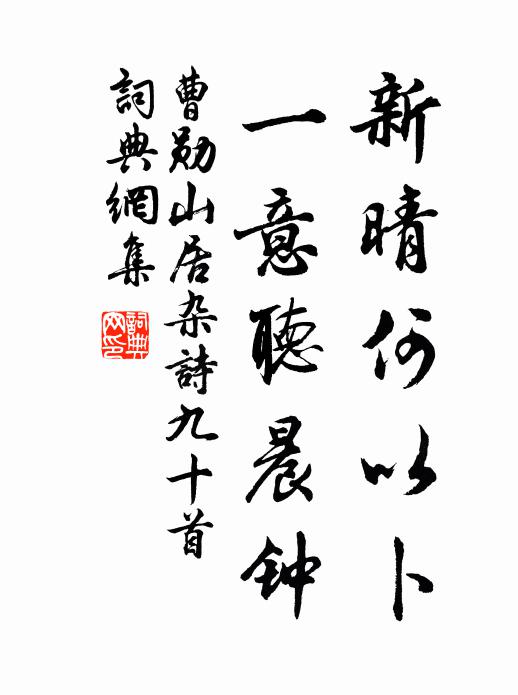 新晴何以卜
一意聽晨钟
曹勋山居杂詩九十首
詞典網集
詞典
网印